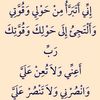 إِنِّي أَتَبَرَّأُ مِنْ حَوْلِي وَقُوَّتِي
وَأَلْتَجِئُ إِلَىٰ حَوْلِكَ وَقُوَّتِكَ
رَبِّ
أَعِنِّي وَلَا تُعِنْ عَلَيَّ
وَانْصُرْنِي وَلَا تَنْصُرْ عَلَيَّ